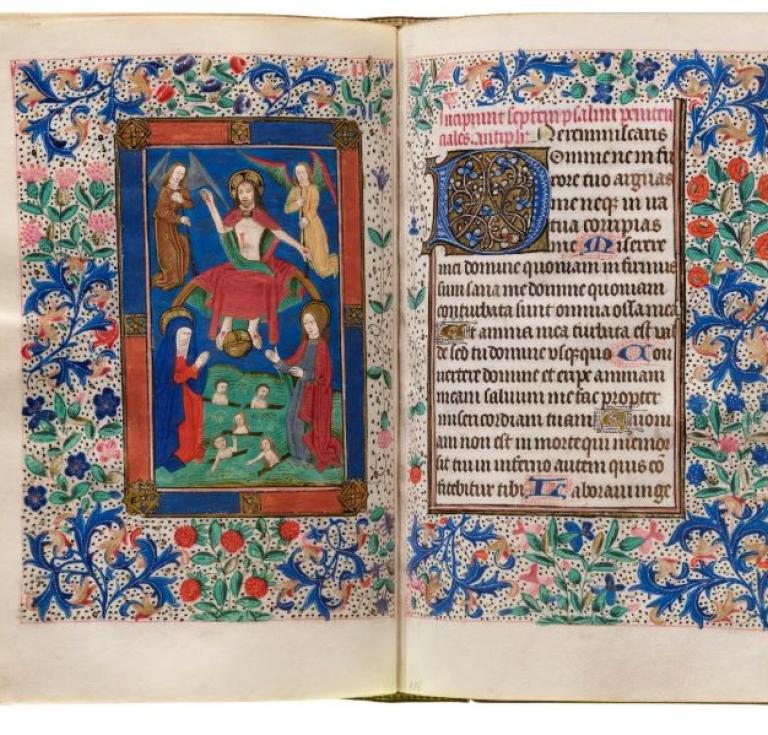 Incipiunt septem psalmi peniten
ciales. antiph. Ne reminiscaris
Domine ne in fu
rore tuo arguas
me neq; in ira
tua corripias
me Miserere
mei domine quoniam infirmus
sum sana me domine quoniam
conturbata sunt omnia ossa mea
Et anima mea turbata est val
de sed tu domine usq;quo Con
vertere domine et eripe animam
meam salvum me fac propter
misericordiam tuam Quoni
am non est in morte qui memor
sit tui in inferno autem quis cō
fitebitur tibi Laboravi in ge